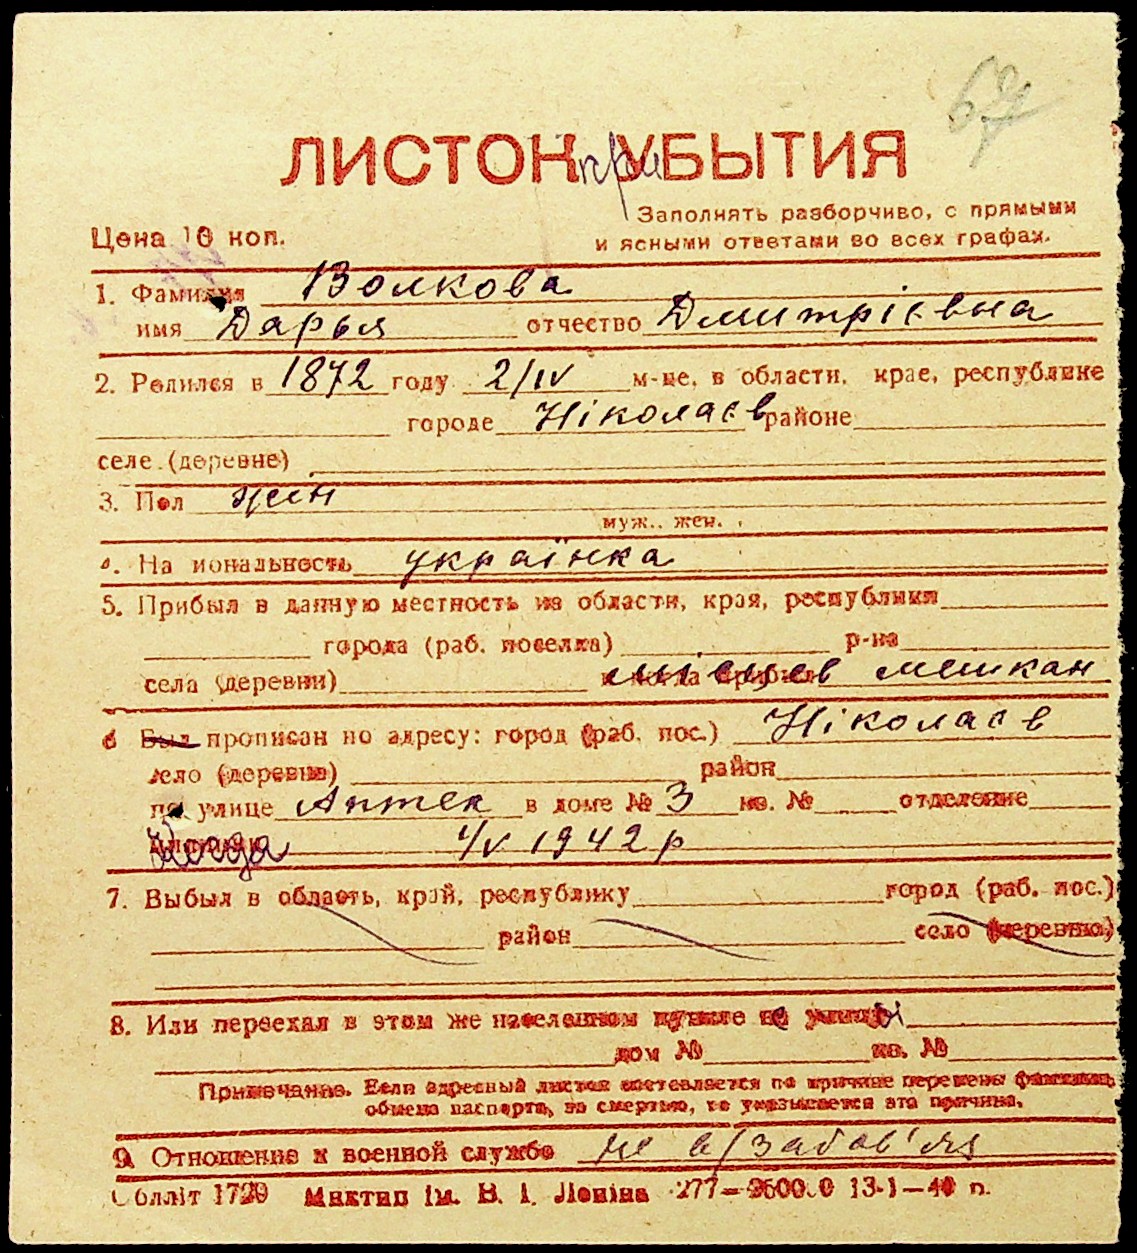 67
ЛИСТОК при УБЫТИЯ
Заполнять разборчиво, с прямыми
Цена 10 коп. и ясными ответами во всех графах.
1. Фамилия Волкова
имя Дарья отчество Дмитрієвна
2. Родился в 1872 году 2/IV м-це, в области, крае, республике
городе Ніколаєв районе
селе (деревне)
3. Пол жін
муж., жен.
4. Национальность українка
5. Прибыл в данную местность из области, края, республики
города (раб. поселка) р-на
села (деревни) и когда прибыл місцев мешкан
6 Был прописан по адресу: город (раб. пос.) Ніколаєв
село (деревня) район
по улице Аптек в доме № 3 кв. № отделение
Когда 1/V 1942 р
7. Выбыл в область, край, республику город (раб. пос.)
район село (деревню)
8. Или переехал в этом же населенном пункте по улицы
дом № кв. №
Примечание. Если адресный листок составляется по причине перемены фамилии,
обмена паспорта, за смертью, то указывается эта причина.
9. Отношение к военной службе не в/забов'яз
Облліт 1729 Миктип ім. В. І. Леніна 277—95000 13-1—40 п.